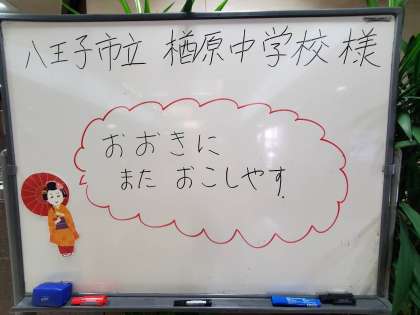 八王子市立 楢原中学校 様
おおきに
また おこしやす.